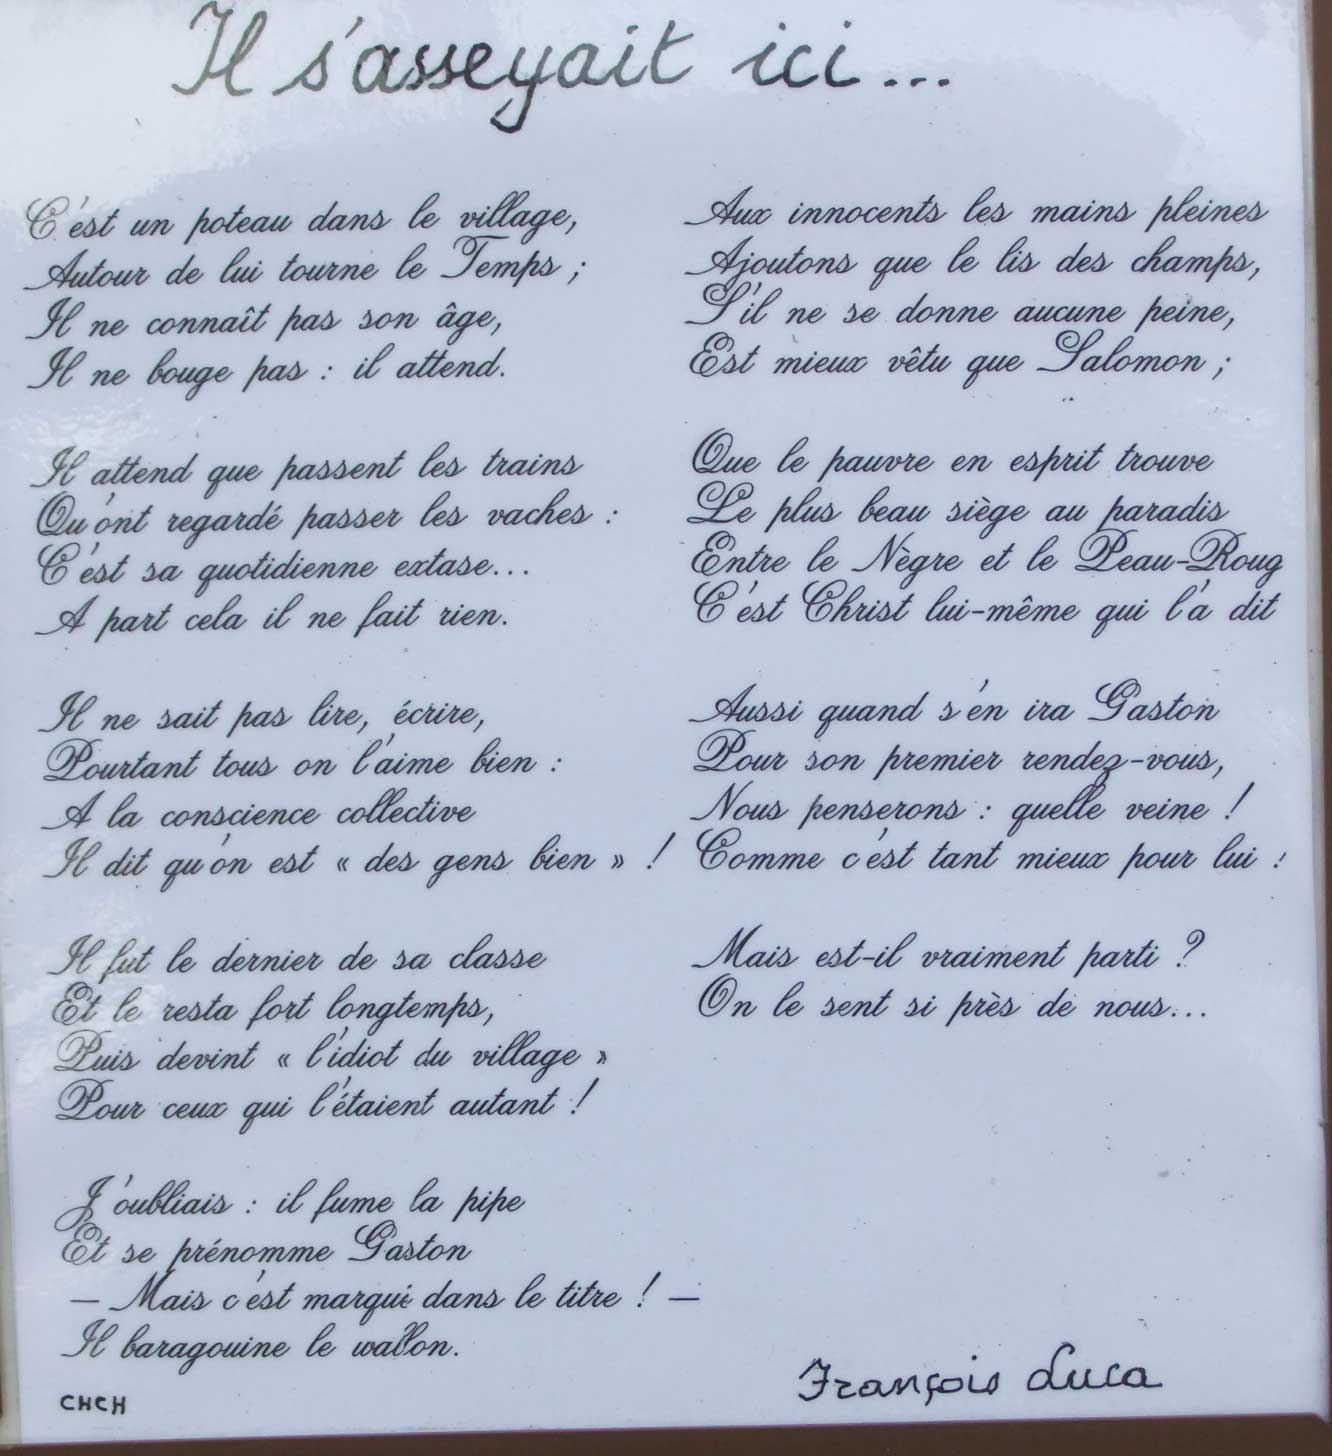 Il s'asseyait ici...
C'est un poteau dans le village,
Autour de lui tourne le Temps ;
Il ne connaît pas son âge,
Il ne bouge pas : il attend.
Il attend que passent les trains
Qu'ont regardé passer les vaches :
C'est sa quotidienne extase...
A part cela il ne fait rien.
Il ne sait pas lire, écrire,
Pourtant tous on l'aime bien :
A la conscience collective
Il dit qu'on est « des gens bien » !
Il fut le dernier de sa classe
Et le resta fort longtemps,
Puis devint « l'idiot du village »
Pour ceux qui l'étaient autant !
J'oubliais : il fume la pipe
Et se prénomme Gaston
— Mais c'est marqué dans le titre ! —
Il baragouine le wallon.
CHCH
Aux innocents les mains pleines
Ajoutons que le lis des champs,
S'il ne se donne aucune peine,
Est mieux vêtu que Salomon ;
Que le pauvre en esprit trouve
Le plus beau siège au paradis
Entre le Nègre et le Peau-Roug
C'est Christ lui-même qui l'a dit
Aussi quand s'en ira Gaston
Pour son premier rendez-vous,
Nous penserons : quelle veine !
Comme c'est tant mieux pour lui !
Mais est-il vraiment parti ?
On le sent si près de nous...
François Luca